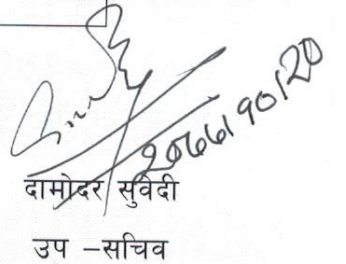 २०६६।१०।२०
दामोदर सुवेदी
उप –सचिव